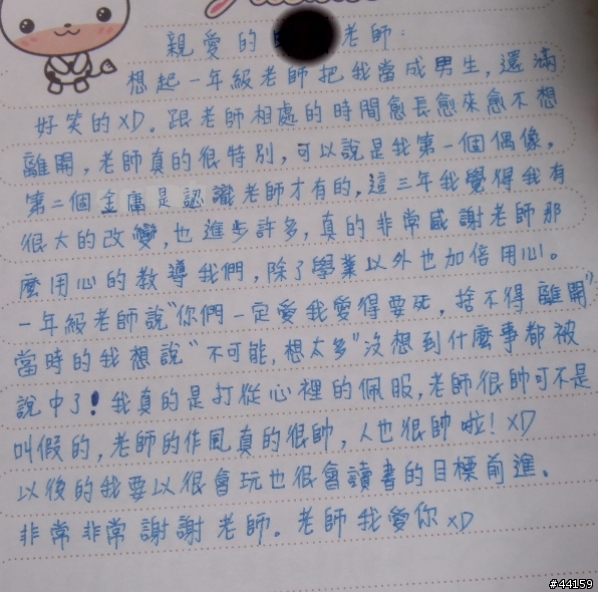 親愛的 老師:
想起一年級老師把我當成男生,還滿
好笑的XD。跟老師相處的時間愈長愈來愈不想
離開,老師真的很特別,可以說是我第一個偶像,
第二個金庸是認識老師才有的,這三年我覺得我有
很大的改變,也進步許多,真的非常感謝老師那
麼用心的教導我們,除了學業以外也加倍用心。
一年級老師說"你們一定愛我愛得要死,捨不得離開"
當時的我想說"不可能,想太多"沒想到什麼事都被
說中了!我真的是打從心裡的佩服,老師很帥可不是
叫假的,老師的作風真的很帥,人也很帥啦!XD
以後的我要以很會玩也很會讀書的目標前進。
非常非常謝謝老師。老師我愛你XD
#44159